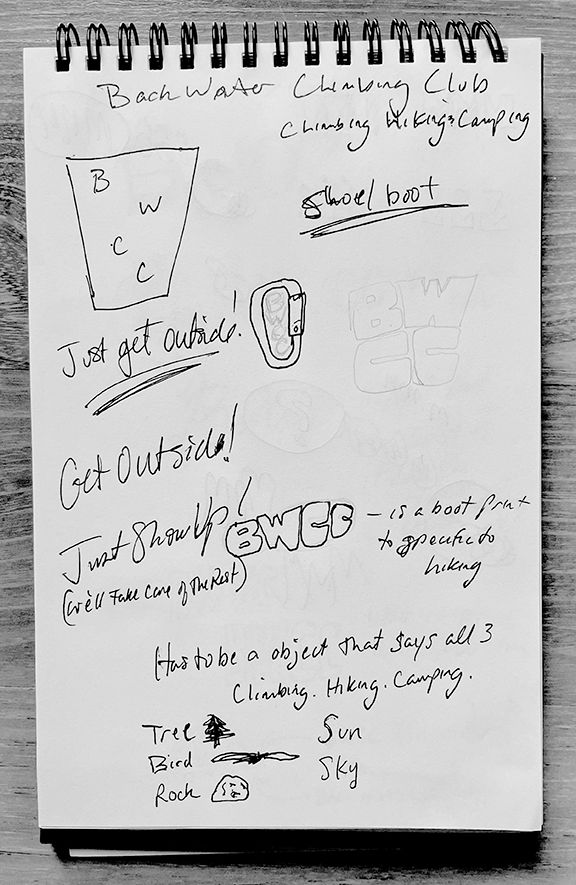 BackWater Climbing Club
Climbing Hiking & Camping
B
W
C
C
Shoe/boot
Just get outside!
BW
CC
Get Outside!
Just Show Up!
(we'll Take Care of The Rest)
BWCC
- is a boot print
to specific to
hiking
Has to be a object that says all 3
Climbing. Hiking. Camping.
Tree
Sun
Bird
Sky
Rock